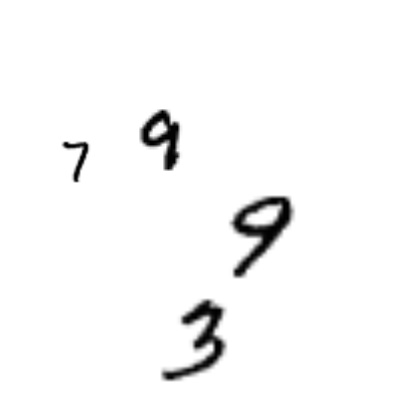 7 9
9
3